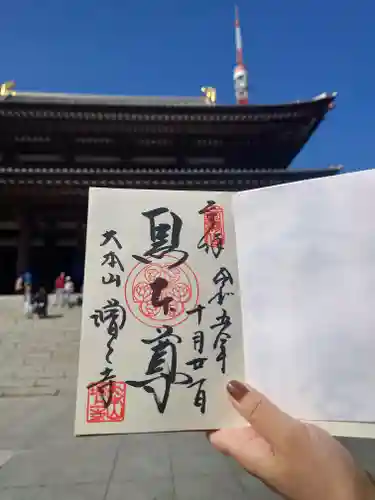 奉拝
令和五年
十月廿日
黒本尊
大本山
増上寺